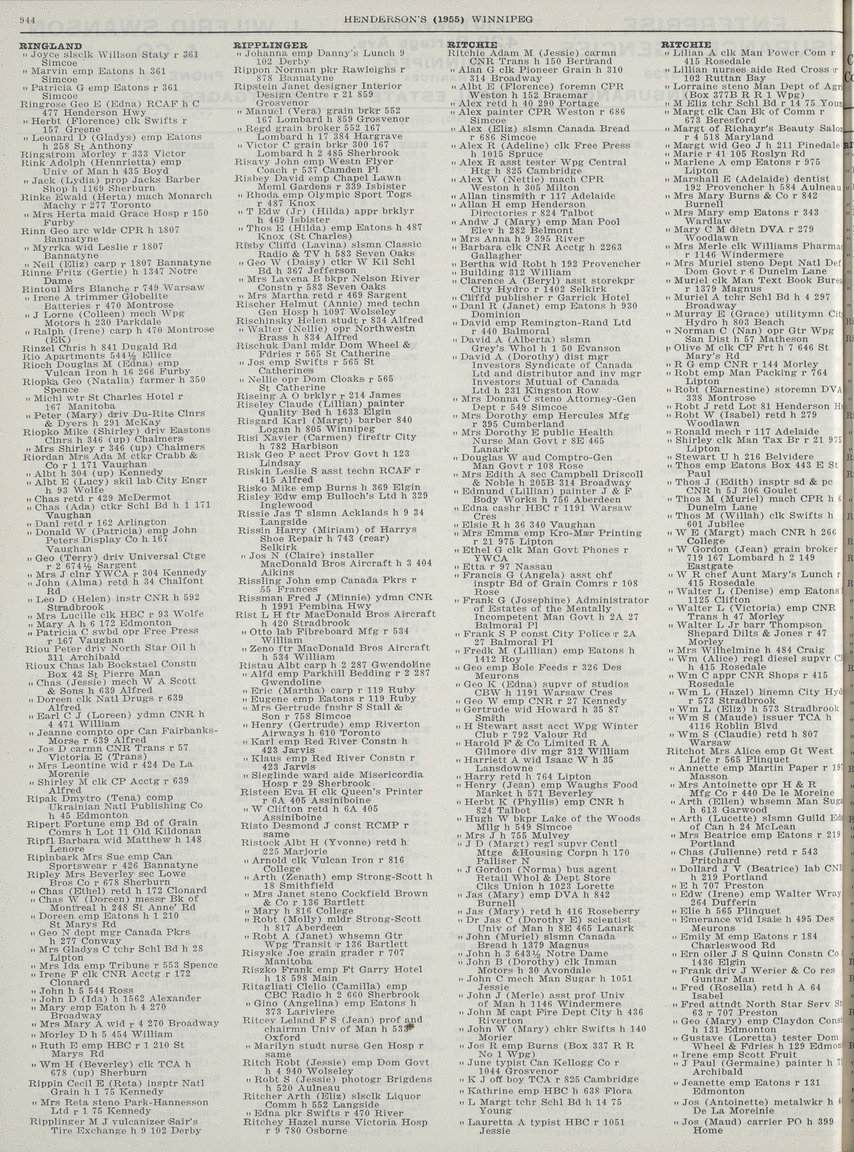 944
HENDERSON'S (1955) WINNIPEG
RINGLAND
" Joyce slsclk Willson Staty r 361
Simcoe
" Marvin emp Eatons h 361
Simcoe
" Patricia G emp Eatons r 361
Simcoe
Ringrose Geo E (Edna) RCAF h C
477 Henderson Hwy
" Herbt (Florence) clk Swifts r
157 Greene
" Leonard D (Gladys) emp Eatons
h 258 St Anthony
Ringstrom Morley r 333 Victor
Rink Adolph (Hennrietta) emp
Univ of Man h 435 Boyd
" Jack (Lydia) prop Jacks Barber
Shop h 1169 Sherburn
Rinke Ewald (Herta) mach Monarch
Machy r 277 Toronto
" Mrs Herta maid Grace Hosp r 150
Furby
Rinn Geo arc wldr CPR h 1807
Bannatyne
" Myrrka wid Leslie r 1807
Bannatyne
" Neil (Eliz) carp r 1807 Bannatyne
Rinne Fritz (Gertie) h 1347 Notre
Dame
Rintoul Mrs Blanche r 749 Warsaw
" Irene A trimmer Globelite
Batteries r 470 Montrose
" J Lorne (Colleen) mech Wpg
Motors h 230 Parkdale
" Ralph (Irene) carp h 470 Montrose
(EK)
Rinzel Chris h 841 Dugald Rd
Rio Apartments 544½ Ellice
Rioch Douglas M (Edna) emp
Vulcan Iron h 16 266 Furby
Riopka Geo (Natalia) farmer h 350
Spence
" Michl wtr St Charles Hotel r
167 Manitoba
" Peter (Mary) driv Du-Rite Clnrs
& Dyers h 291 McKay
Riopko Mike (Shirley) driv Eastons
Clnrs h 346 (up) Chalmers
" Mrs Shirley r 346 (up) Chalmers
Riordan Mrs Ada M ctkr Crabb &
Co r 1 171 Vaughan
" Albt h 304 (up) Kennedy
" Albt E (Lucy) skil lab City Engr
h 93 Wolfe
" Chas retd r 429 McDermot
" Chas (Ada) ctkr Schl Bd h 1 171
Vaughan
" Danl retd r 162 Arlington
" Donald W (Patricia) emp John
Peters Display Co h 167
Vaughan
" Geo (Terry) driv Universal Ctge
r 2 674½ Sargent
" Mrs J clnr YWCA r 304 Kennedy
" John (Alma) retd h 34 Chalfont
Rd
" Leo D (Helen) instr CNR h 592
Stradbrook
" Mrs Lucille clk HBC r 93 Wolfe
" Mary A h 6 172 Edmonton
" Patricia C swbd opr Free Press
r 167 Vaughan
Riou Peter driv North Star Oil h
311 Archibald
Rioux Chas lab Bockstael Constn
Box 42 St Pierre Man
" Chas (Jessie) mech W A Scott
& Sons h 639 Alfred
" Doreen clk Natl Drugs r 639
Alfred
" Earl C J (Loreen) ydmn CNR h
4 471 William
" Jeanne compto opr Can Fairbanks-
Morse r 639 Alfred
" Jos D carmn CNR Trans r 57
Victoria E (Trans)
" Mrs Leontine wid r 424 De La
Morenie
" Shirley M clk CP Acctg r 639
Alfred
Ripak Dmytro (Tena) comp
Ukrainian Natl Publishing Co
h 45 Edmonton
Ripert Fortune emp Bd of Grain
Comrs h Lot 11 Old Kildonan
Ripfl Barbara wid Matthew h 148
Lenore
Ripinbark Mrs Sue emp Can
Sportswear r 426 Bannatyne
Ripley Mrs Beverley sec Lowe
Bros Co r 678 Sherburn
" Chas (Ethel) retd h 172 Clonard
" Chas W (Doreen) messr Bk of
Montreal h 248 St Anne' Rd
" Doreen emp Eatons h 1 210
St Marys Rd
" Geo N dept mgr Canada Pkrs
h 277 Conway
" Mrs Gladys C tchr Schl Bd h 28
Lipton
" Mrs Ida emp Tribune r 553 Spence
" Irene P clk CNR Acctg r 172
Clonard
" John h 5 544 Ross
" John D (Ida) h 1562 Alexander
" Mary emp Eaton h 4 270
Broadway
" Mrs Mary A wid r 4 270 Broadway
" Morley D h 5 454 William
" Ruth E emp HBC r 1 210 St
Marys Rd
" Wm H (Beverley) clk TCA h
678 (up) Sherburn
Rippin Cecil E (Reta) insptr Natl
Grain h 1 75 Kennedy
" Mrs Reta steno Park-Hannesson
Ltd r 1 75 Kennedy
Ripplinger M J vulcanizer Sair's
Tire Exchange h 9 102 Derby
RIPPLINGER
" Johanna emp Danny's Lunch 9
102 Derby
Rippon Norman pkr Rawleighs r
878 Bannatyne
Ripstein Janet designer Interior
Design Centre r 21 859
Grosvenor
" Manuel (Vera) grain brkr 552
167 Lombard h 859 Grosvenor
" Regd grain broker 552 167
Lombard h 17 384 Hargrave
" Victor C grain brkr 300 167
Lombard h 2 485 Sherbrook
Risavy John emp Westn Flyer
Coach r 537 Camden Pl
Risbey David emp Chapel Lawn
Meml Gardens r 339 Isbister
" Rhoda emp Olympic Sport Togs
r 487 Knox
" T Edw (Jr) (Hilda) appr brklyr
h 469 Isbister
" Thos E (Hilda) emp Eatons h 487
Knox (St Charles)
Risby Cliffd (Lavina) slsmn Classic
Radio & TV h 583 Seven Oaks
" Geo W (Daisy) ctkr W Kil Schl
Bd h 367 Jefferson
" Mrs Lavena B bkpr Nelson River
Constn r 583 Seven Oaks
" Mrs Martha retd r 469 Sargent
Rischer Helmut (Annie) med techn
Gen Hosp h 1097 Wolseley
Rischinsky Helen studt r 834 Alfred
" Walter (Nellie) opr Northwestn
Brass h 834 Alfred
Rischuk Danl mldr Dom Wheel &
Fdries r 565 St Catherine
" Jos emp Swifts r 565 St
Catherines
" Nellie opr Dom Cloaks r 565
St Catherine
Riseing A O brklyr r 214 James
Riseley Claude (Lillian) painter
Quality Bed h 1633 Elgin
Risgard Karl (Margt) barber 840
Logan h 805 Winnipeg
Risi Xavier (Carmen) fireftr City
h 782 Harbison
Risk Geo P acct Prov Govt h 123
Lindsay
Riskin Leslie S asst techn RCAF r
415 Alfred
Risko Mike emp Burns h 369 Elgin
Risley Edw emp Bulloch's Ltd h 329
Inglewood
Rissie Jas T slsmn Acklands h 9 34
Langside
Rissin Harry (Miriam) of Harrys
Shoe Repair h 743 (rear)
Selkirk
" Jos N (Claire) installer
MacDonald Bros Aircraft h 3 404
Aikins
Rissling John emp Canada Pkrs r
55 Frances
Rissman Fred J (Minnie) ydmn CNR
h 1991 Pembina Hwy
Rist L H ftr MacDonald Bros Aircraft
h 420 Stradbrook
" Otto lab Fibreboard Mfg r 534
William
" Zeno ftr MacDonald Bros Aircraft
h 534 William
Ristau Albt carp h 2 287 Gwendoline
" Alfd emp Parkhill Bedding r 2 287
Gwendoline
" Eric (Martha) carp r 119 Ruby
" Eugene emp Eatons r 119 Ruby
" Mrs Gertrude fnshr S Stall &
Son r 758 Simcoe
" Henry (Gertrude) emp Riverton
Airways h 610 Toronto
" Karl emp Red River Constn h
423 Jarvis
" Klaus emp Red River Constn r
423 Jarvis
" Sieglinde ward aide Misericordia
Hosp r 29 Sherbrook
Risteen Eva H clk Queen's Printer
r 6A 405 Assiniboine
" W Clifton retd h 6A 405
Assiniboine
Risto Desmond J const RCMP r
same
Ristock Albt H (Yvonne) retd h
225 Marjorie
" Arnold clk Vulcan Iron r 816
College
" Arth (Zenath) emp Strong-Scott h
18 Smithfield
" Mrs Janet steno Cockfield Brown
& Co r 136 Bartlett
" Mary h 816 College
" Robt (Molly) mldr Strong-Scott
h 817 Aberdeen
" Robt A (Janet) whsemn Gtr
Wpg Transit r 136 Bartlett
Risyske Joe grain grader r 707
Manitoba
Riszko Frank emp Ft Garry Hotel
h 18 598 Main
Ritagliati Clelio (Camilla) emp
CBC Radio h 2 660 Sherbrook
" Gino (Angelina) emp Eatons h
373 Lariviere
Ritcey Leland F S (Jean) prof and
chairmn Univ of Man h 533
Oxford
" Marilyn studt nurse Gen Hosp r
same
Ritch Robt (Jessie) emp Dom Govt
h 4 940 Wolseley
" Robt S (Jessie) photogr Brigdens
h 520 Aulneau
Ritcher Arth (Eliz) slsclk Liquor
Comm h 552 Langside
" Edna pkr Swifts r 470 River
Ritchey Hazel nurse Victoria Hosp
r 9 780 Osborne
RITCHIE
Ritchie Adam M (Jessie) carmn
CNR Trans h 150 Bertrand
" Alan G clk Pioneer Grain h 310
314 Broadway
" Albt E (Florence) foremn CPR
Weston h 152 Braemar
" Alex retd h 40 290 Portage
" Alex painter CPR Weston r 686
Simcoe
" Alex (Eliz) slsmn Canada Bread
r 686 Simcoe
" Alex R (Adeline) clk Free Press
h 1015 Spruce
" Alex R asst tester Wpg Central
Htg h 825 Cambridge
" Alex W (Nettie) mach CPR
Weston h 305 Milton
" Allan tinsmith r 117 Adelaide
" Allan H emp Henderson
Directories r 824 Talbot
" Andw J (Mary) emp Man Pool
Elev h 282 Belmont
" Mrs Anna h 9 395 River
" Barbara clk CNR Acctg h 2263
Gallagher
" Bertha wid Robt h 192 Provencher
" Building 312 William
" Clarence A (Beryl) asst storekpr
City Hydro r 1402 Selkirk
" Cliffd publisher r Garrick Hotel
" Danl R (Janet) emp Eatons h 930
Dominion
" David emp Remington-Rand Ltd
r 440 Balmoral
" David A (Alberta) slsmn
Grey's Whol h 1 50 Evanson
" David A (Dorothy) dist mgr
Investors Syndicate of Canada
Ltd and distributor and inv mgr
Investors Mutual of Canada
Ltd h 231 Kingston Row
" Mrs Donna C steno Attorney-Gen
Dept r 549 Simcoe
" Mrs Dorothy emp Hercules Mfg
r 395 Cumberland
" Mrs Dorothy E public health
Nurse Man Govt r 8E 465
Lanark
" Douglas W aud Comptro-Gen
Man Govt r 108 Rose
" Mrs Edith A sec Campbell Driscoll
& Noble h 205B 314 Broadway
" Edmund (Lillian) painter J & F
Body Works h 756 Aberdeen
" Edna cashr HBC r 1191 Warsaw
Cres
" Elsie R h 36 340 Vaughan
" Mrs Emma emp Kro-Mar Printing
r 21 975 Lipton
" Ethel G clk Man Govt Phones r
YWCA
" Etta r 97 Nassau
" Francis G (Angela) asst chf
insptr Bd of Grain Comrs r 108
Rose
" Frank G (Josephine) Administrator
of Estates of the Mentally
Incompetent Man Govt h 2A 27
Balmoral Pl
" Frank S P const City Police r 2A
27 Balmoral Pl
" Fredk M (Lillian) emp Eatons h
1412 Roy
" Geo emp Bole Feeds r 326 Des
Meurons
" Geo K (Edna) supvr of studios
CBW h 1191 Warsaw Cres
" Geo W emp CNR r 27 Kennedy
" Gertrude wid Howard h 35 87
Smith
" H Stewart asst acct Wpg Winter
Club r 792 Valour Rd
" Harold F & Co Limited R A
Gilmore div mgr 312 William
" Harriett A wid Isaac W h 35
Lansdowne
" Harry retd h 764 Lipton
" Henry (Jean) emp Waughs Food
Market h 571 Beverley
" Herbt K (Phyllis) emp CNR h
824 Talbot
" Hugh W bkpr Lake of the Woods
Mllg h 549 Simcoe
" Mrs J h 755 Mulvey
" J D (Margt) regl supvr Centl
Mtge &Housing Corpn h 170
Palliser N
" J Gordon (Norma) bus agent
Retail Whol & Dept Store
Clks Union h 1023 Lorette
" Jas (Mary) emp DVA h 842
Burnell
" Jas (Mary) retd h 416 Roseberry
" Dr Jas C (Dorothy E) scientist
Univ of Man h 8E 465 Lanark
" John (Muriel) slsmn Canada
Bread h 1379 Magnus
" John h 3 643½ Notre Dame
" John B (Dorothy) clk Inman
Motors h 30 Avondale
" John C mech Man Sugar h 1051
Jessie
" John J (Merle) asst prof Univ
of Man h 1146 Windermere
" John M capt Fire Dept City h 436
Riverton
" John W (Mary) chkr Swifts h 140
Morier
" Jos R emp Burns (Box 337 R R
No 1 Wpg)
" June typist Can Kellogg Co r
1044 Grosvenor
" K J off boy TCA r 825 Cambridge
" Kathrine emp HBC h 638 Flora
" L Margt tchr Schl Bd h 14 75
Young
" Lauretta A typist HBC r 1051
Jessie
RITCHIE
" Lilian A clk Man Power Com r
415 Rosedale
" Lillian nurses aide Red Cross r
102 Ruttan Bay
" Lorraine steno Man Dept of Agri
(Box 377B R R 1 Wpg)
" M Eliz tchr Schl Bd r 14 75 You
" Margt clk Can Bk of Comm r
673 Beresford
" Margt of Richayr's Beauty Salo
r 4 518 Maryland
" Margt wid Geo J h 211 Pinedale
" Marie r 41 105 Roslyn Rd
" Marlene A emp Eatons r 975
Lipton
" Marshall E (Adelaide) dentist
192 Provencher h 584 Aulneau
" Mrs Mary Burns & Co r 842
Burnell
" Mrs Mary emp Eatons r 343
Wardlaw
" Mary C M dietn DVA r 279
Woodlawn
" Mrs Merle clk Williams Pharma
r 1146 Windermere
" Mrs Muriel steno Dept Natl Def
Dom Govt r 6 Dunelm Lane
" Muriel clk Man Text Book Burea
r 1379 Magnus
" Muriel A tchr Schl Bd h 4 297
Broadway
" Murray E (Grace) utilitymn City
Hydro h 803 Beach
" Norman C (Nan) opr Gtr Wpg
San Dist h 57 Matheson
" Olive M clk CP Frt h 7 646 St
Mary's Rd
" R G emp CNR r 144 Morley
" Robt emp Man Packing r 764
Lipton
" Robt (Earnestine) storemn DVA
338 Montrose
" Robt J retd Lot 81 Henderson H
" Robt W (Isabel) retd h 279
Woodlawn
" Ronald mech r 117 Adelaide
" Shirley clk Man Tax Br r 21 975
Lipton
" Stewart U h 216 Belvidere
" Thos emp Eatons Box 443 E St
Paul
" Thos J (Edith) insptr sd & pc
CNR h 5J 306 Goulet
" Thos M (Muriel) mach CPR h 6
Dunelm Lane
" Thos M (Willah) clk Swifts h
601 Jubilee
" W E (Margt) mach CNR h 266
College
" W Gordon (Jean) grain broker
719 167 Lombard h 2 149
Eastgate
" W R chef Aunt Mary's Lunch r
415 Rosedale
" Walter L (Denise) emp Eatons
1125 Clifton
" Walter L (Victoria) emp CNR
Trans h 47 Morley
" Walter L Jr barr Thompson
Shepard Dilts & Jones r 47
Morley
" Mrs Wilhelmine h 484 Craig
" Wm (Alice) regl diesel supvr C
h 415 Rosedale
" Wm C appr CNR Shops r 415
Rosedale
" Wm L (Hazel) linemn City Hyd
r 573 Stradbrook
" Wm L (Eliz) r 573 Stradbrook
" Wm S (Maude) issuer TCA h
4116 Roblin Blvd
" Wm S (Claudie) retd h 807
Warsaw
Ritchot Mrs Alice emp Gt West
Life r 565 Plinquet
" Annette emp Martin Paper r 19
Masson
" Mrs Antoinette opr H & R
Mfg Co r 440 De le Moreine
" Arth (Ellen) whsemn Man Suga
h 613 Garwood
" Arth (Lucette) slsmn Guild Ed
of Can h 24 McLean
" Mrs Beatrice emp Eatons r 219
Portland
" Chas (Julienne) retd r 543
Pritchard
" Dollard J V (Beatrice) lab CNR
h 219 Portland
" E h 707 Preston
" Edw (Irene) emp Walter Wray
264 Dufferin
" Elie h 565 Plinquet
" Emerance wid Isaie h 495 Des
Meurons
" Emily M emp Eatons r 184
Charleswood Rd
" Ern oiler J S Quinn Constn Co
1436 Elgin
" Frank driv J Werier & Co res
Guntar Man
" Fred (Rosella) retd h A 64
Isabel
" Fred attndt North Star Serv S
63 r 707 Preston
" Geo (Mary) emp Claydon Cons
h 131 Edmonton
" Gustave (Loretta) tester Dom
Wheel & Fdries h 129 Edmon
" Irene emp Scott Fruit
" J Paul (Germaine) painter h 7
Archibald
" Jeanette emp Eatons r 131
Edmonton
" Jos (Antoinette) metalwkr h
De La Moreinie
" Jos (Maud) carrier PO h 399
Home